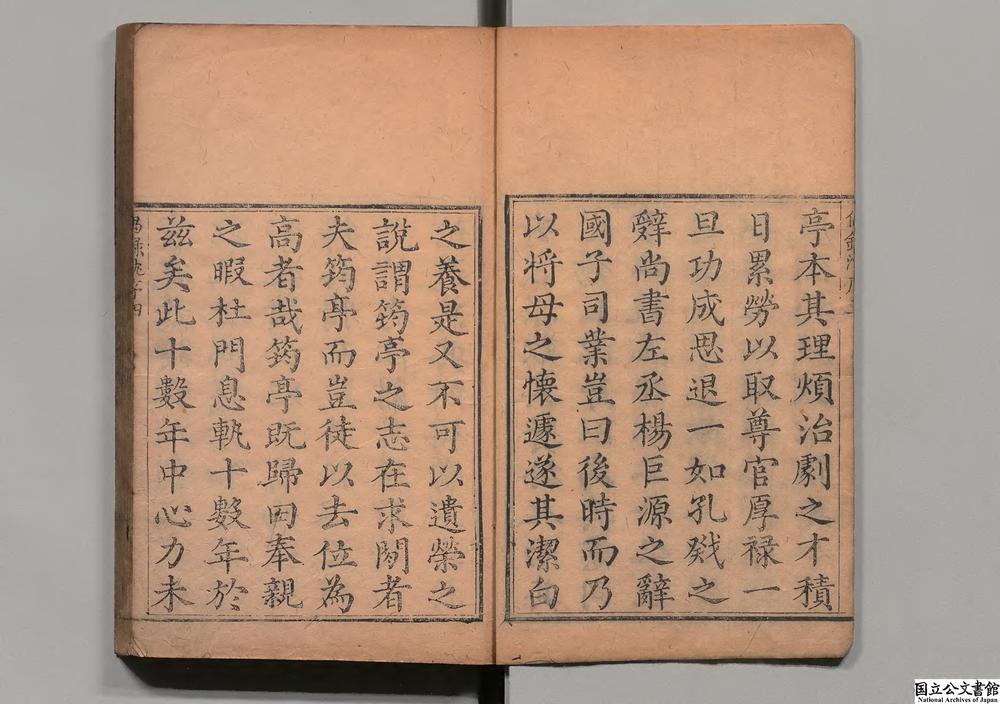 亭本其理煩治劇之才積
日累勞以取尊官厚禄一
旦功成思退一如孔戣之
辭尚書左丞楊巨源之辭
國子司業豈曰後時而乃
以将母之懷遽遂其潔白
之養是又不可以遺榮之
說謂筠亭之志在求閒者
夫筠亭而豈徒以去位為
高者哉筠亭既歸田奉親
之暇杜門息軌十數年於
兹矣此十數年中心力未
国立公文書館
National Archives of Japan